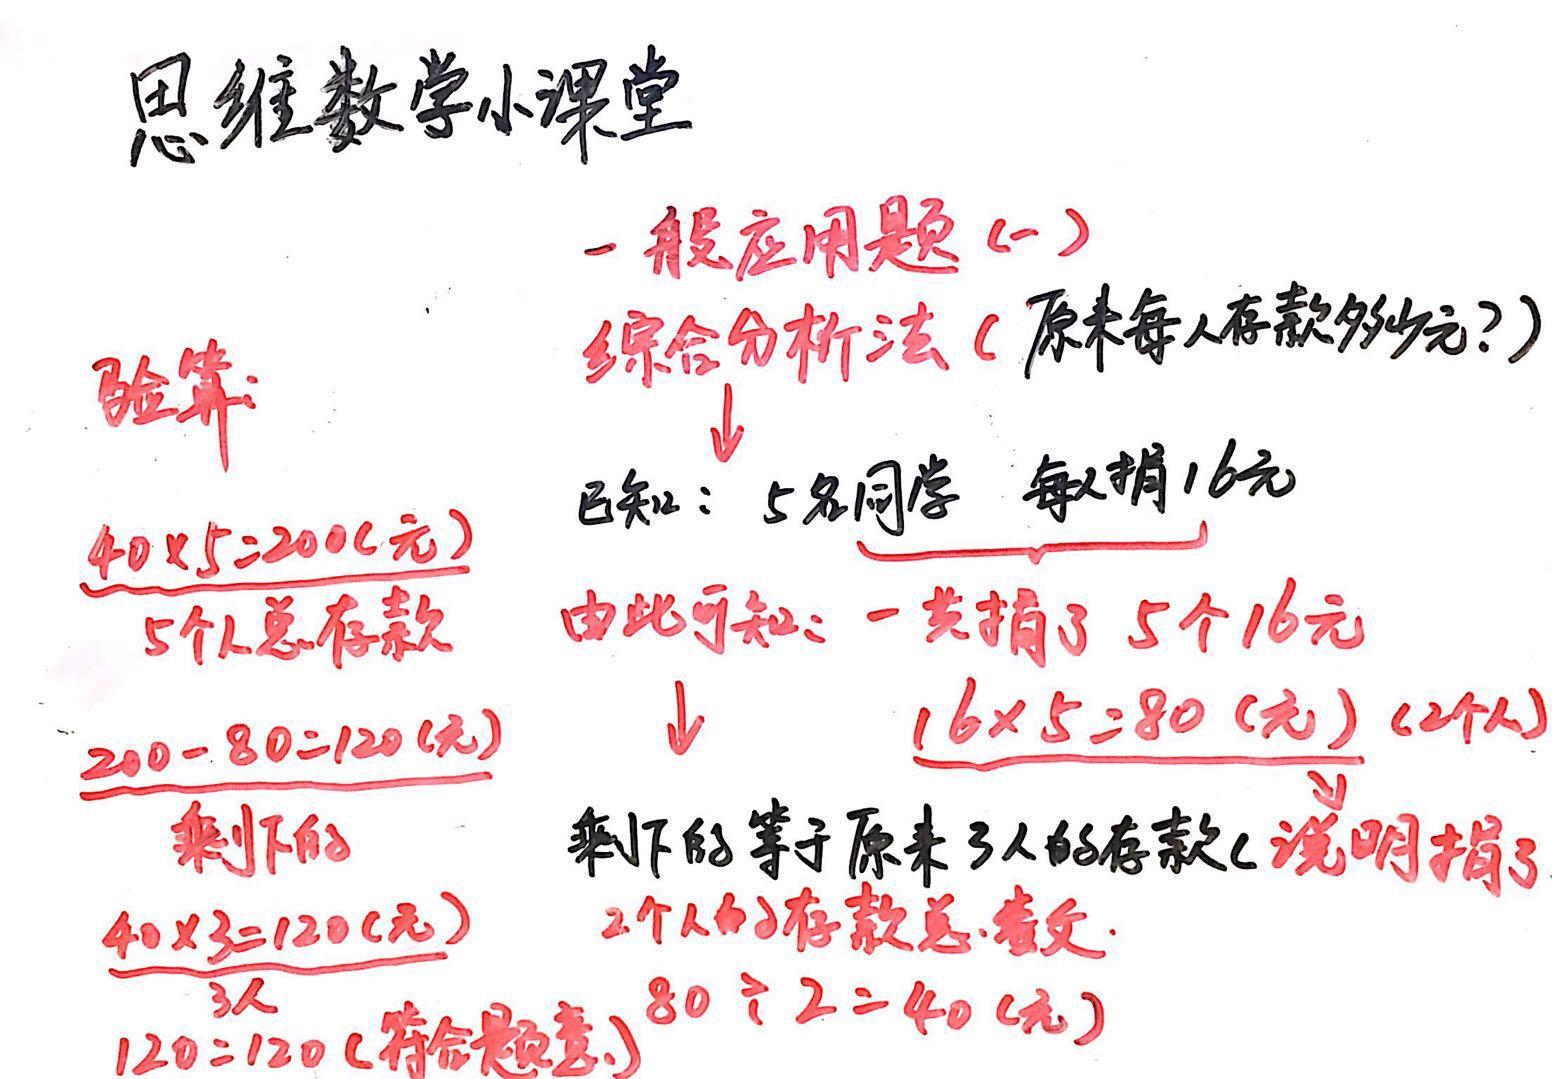 思维数学小课堂
一般应用题(一)
综合分析法(原来每人存款多少元?)
已知: 5名同学 每人捐16元
由此可知: 一共捐了5个16元
16×5=80(元)(2个人)
剩下的等于原来3人的存款(说明捐了
2个人的存款总数.
80÷2=40(元)
验算:
40×5=200(元)
5个人总存款
200-80=120(元)
剩下的
40×3=120(元)
3人
120=120(符合题意.)